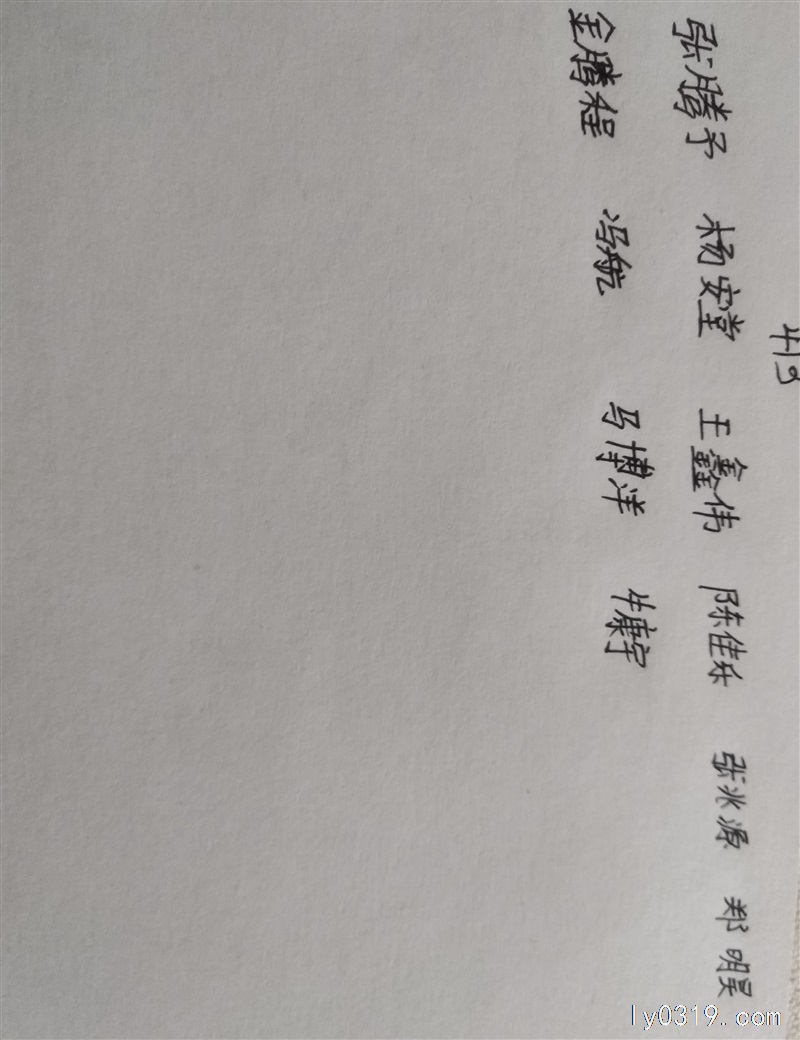 413
张腾予 杨安堂 王鑫伟 陈佳乐 张兆源 郑明昊
金腾程 冯航 马博洋 牛康宇
ly0319.com